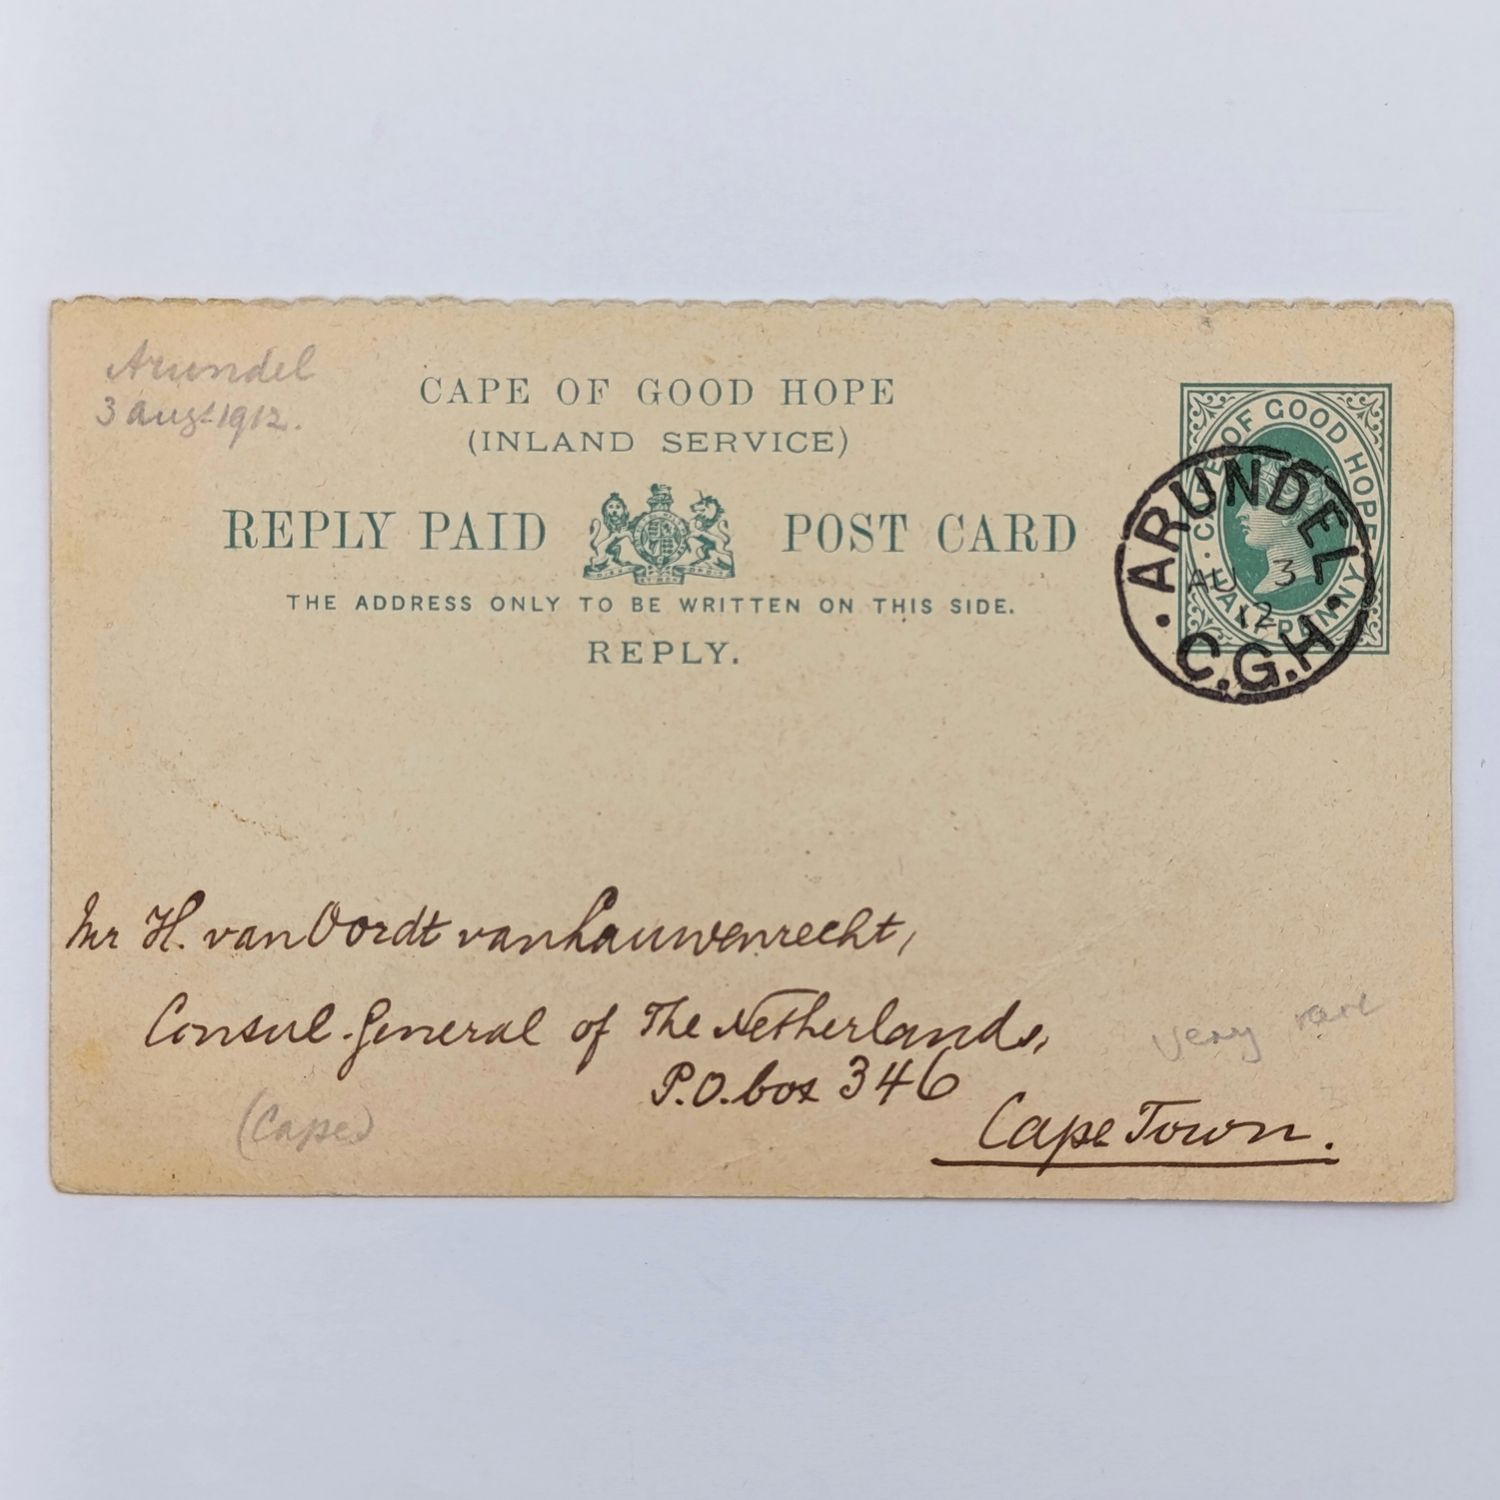 Arundel
3 Augt 1912.
CAPE OF GOOD HOPE
(INLAND SERVICE)
REPLY PAID POST CARD
THE ADDRESS ONLY TO BE WRITTEN ON THIS SIDE.
REPLY.
CAPE OF GOOD HOPE
HALFPENNY
ARUNDEL
AU 3
12
C.G.H.
Mr H. van Oordt van Lauwenrecht,
Consul-General of The Netherlands,
P.O. box 346
Cape Town.
very rare
(Cape)